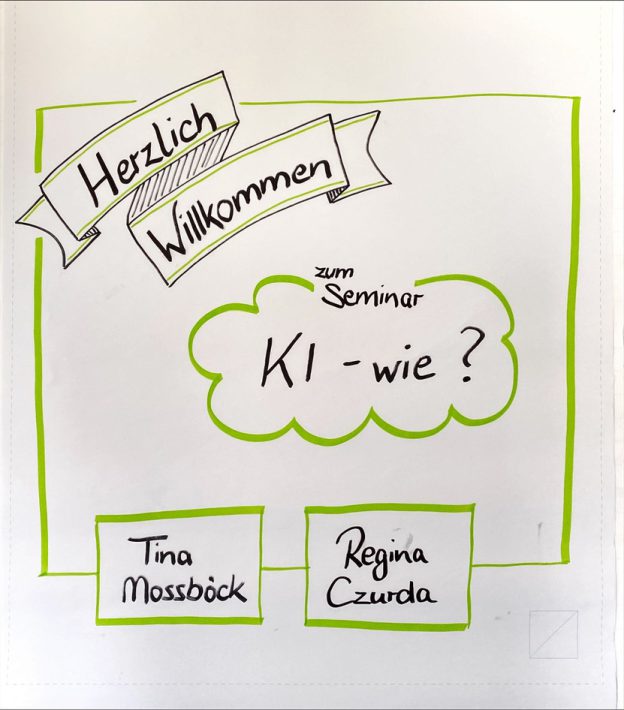 Herzlich
Willkommen
zum
Seminar
KI - wie ?
Tina
Mossböck
Regina
Czurda